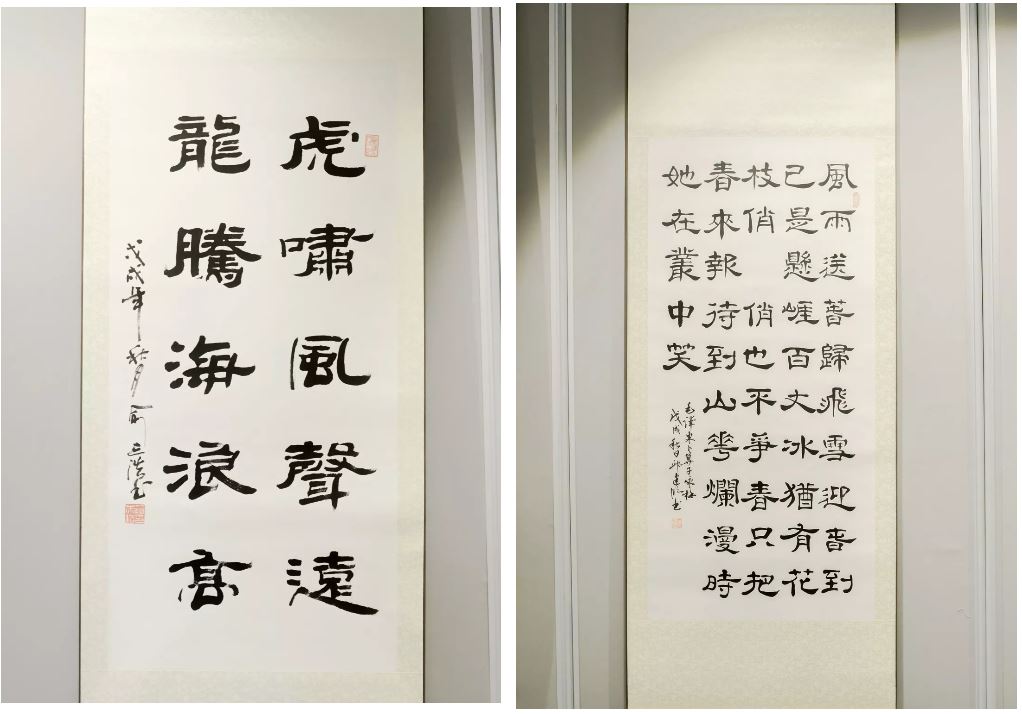 虎嘯風聲遠
龍騰海浪高
戊戌年秋月
風雨送春歸飛雪迎春到
已是懸崕百丈冰猶有花
枝俏 俏也不爭春只把
春來報待到山花爛漫時
她在叢中笑
毛澤東卜算子咏梅
戊戌秋日